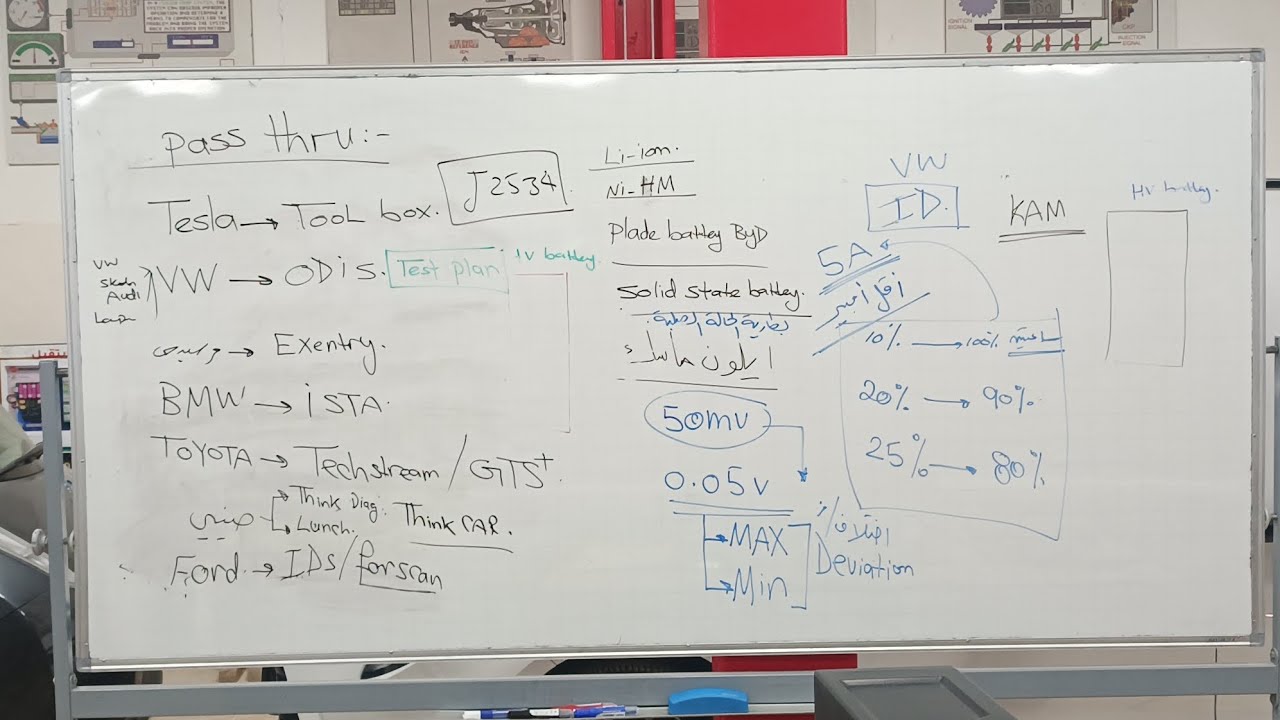 Pass thru:-
J2534
Tesla → Tool box.
VW
Skoda
Audi
VW → ODIS. Test plan
HV battery.
مرسيدس → Exentry.
BMW → ISTA.
TOYOTA → Techstream / GTS+
صيني → Think Diag.
→ Lunch. Think CAR.
Ford → IDs / forscan
Li-ion.
Ni-HM
Plade battey ByD
Solid state battey.
بطارية الحالة الصلبة
ايلون ماسك
50mv
0.05v
→ MAX
→ Min
اختلاف
Deviation
VW
ID.
5A
أقل أمبير
10% → 100%
20% → 90%.
25% → 80%
KAM
HV battey.
IGNITION SIGNAL
INJECTION SIGNAL